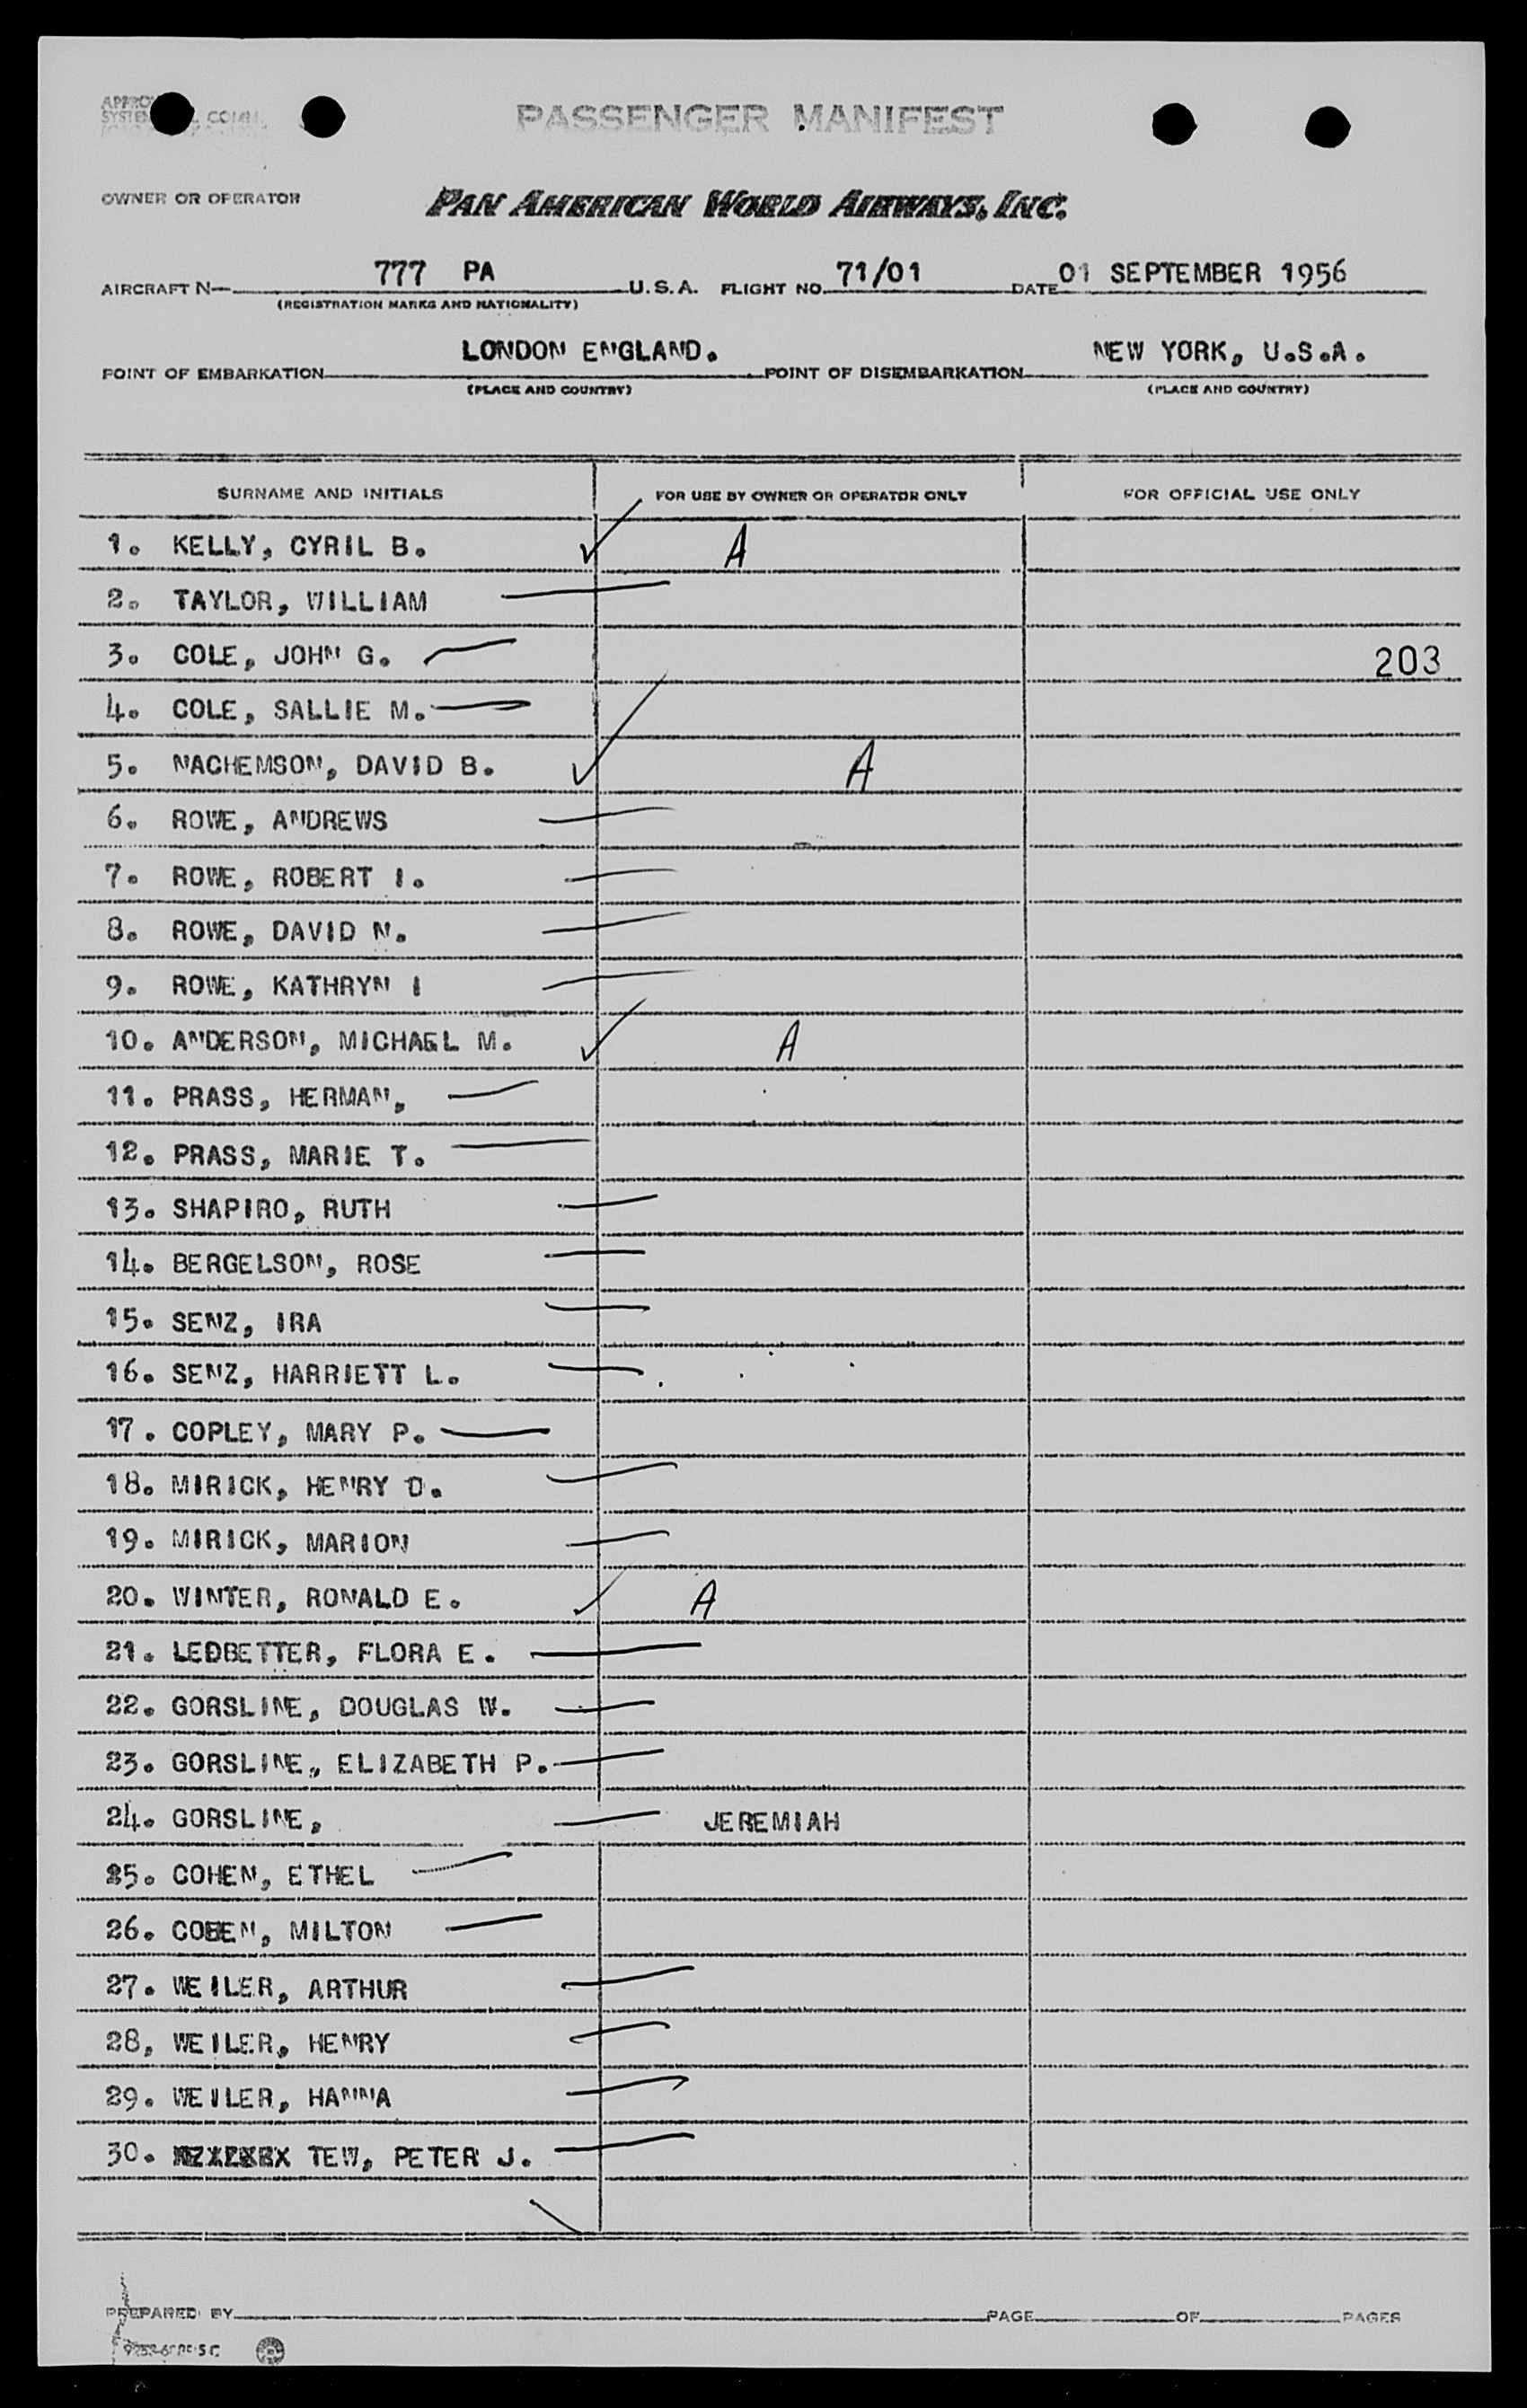 PASSENGER MANIFEST
OWNER OR OPERATOR PAN AMERICAN WORLD AIRWAYS, INC.
AIRCRAFT N— 777 PA U.S.A. FLIGHT NO. 71/01 DATE 01 SEPTEMBER 1956
(REGISTRATION MARKS AND NATIONALITY)
POINT OF EMBARKATION LONDON ENGLAND. POINT OF DISEMBARKATION NEW YORK, U.S.A.
(PLACE AND COUNTRY) (PLACE AND COUNTRY)
SURNAME AND INITIALS FOR USE BY OWNER OR OPERATOR ONLY FOR OFFICIAL USE ONLY
1. KELLY, CYRIL B. ✓ A
2. TAYLOR, WILLIAM —
3. COLE, JOHN G. — 203
4. COLE, SALLIE M. —
5. NACHEMSON, DAVID B. ✓ A
6. ROWE, ANDREWS —
7. ROWE, ROBERT I. —
8. ROWE, DAVID N. —
9. ROWE, KATHRYN I —
10. ANDERSON, MICHAEL M. ✓ A
11. PRASS, HERMAN, —
12. PRASS, MARIE T. —
13. SHAPIRO, RUTH —
14. BERGELSON, ROSE —
15. SENZ, IRA —
16. SENZ, HARRIETT L. —
17. COPLEY, MARY P. —
18. MIRICK, HENRY D. —
19. MIRICK, MARION —
20. WINTER, RONALD E. ✓ A
21. LEDBETTER, FLORA E. —
22. GORSLINE, DOUGLAS W. —
23. GORSLINE, ELIZABETH P. —
24. GORSLINE, — JEREMIAH
25. COHEN, ETHEL —
26. COHEN, MILTON —
27. WEILER, ARTHUR —
28, WEILER, HENRY —
29. WEILER, HANNA —
30. TEW, PETER J. —
PREPARED BY PAGE OF PAGES